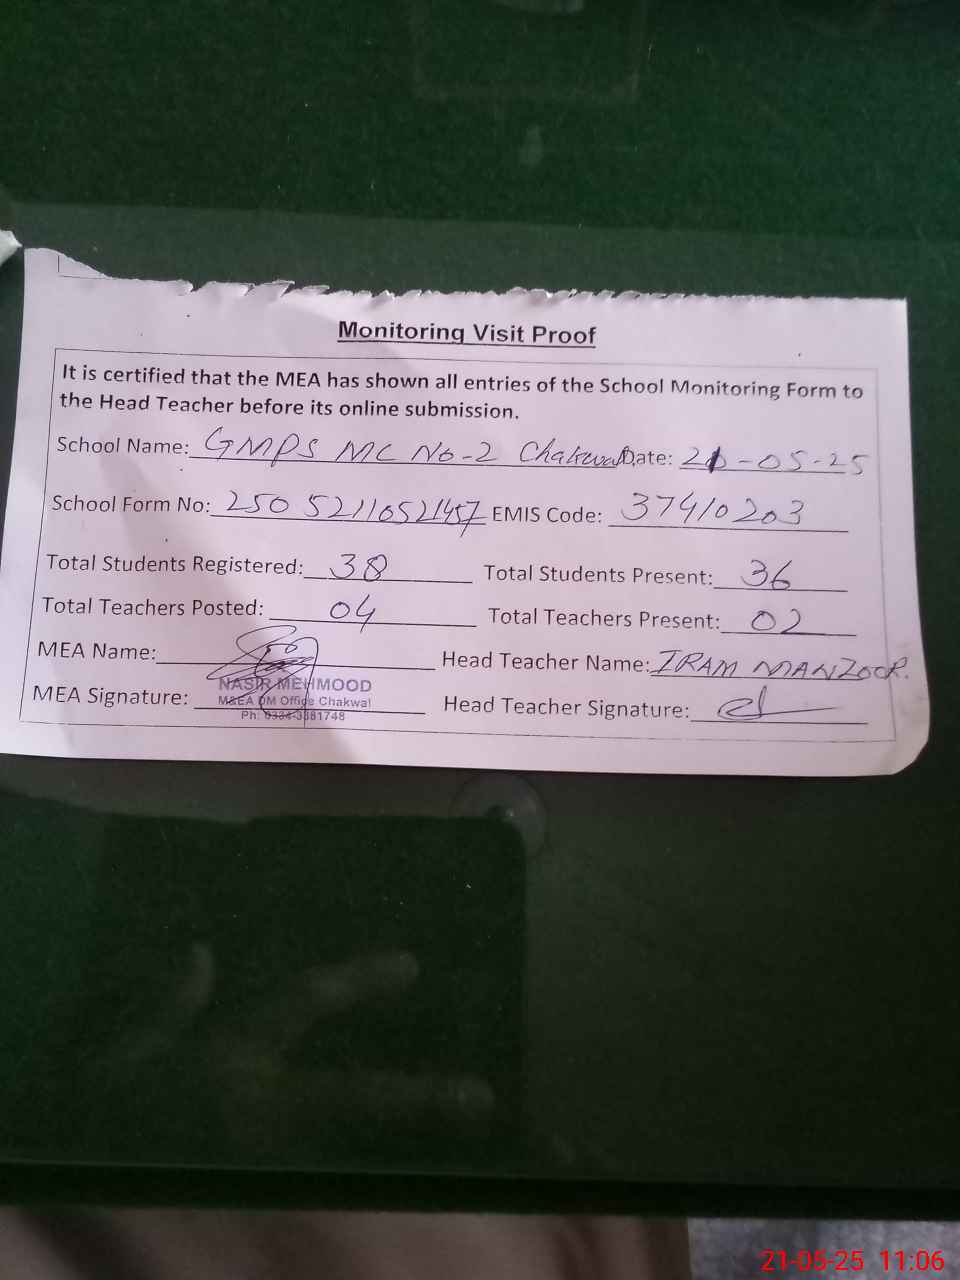 Monitoring Visit Proof
It is certified that the MEA has shown all entries of the School Monitoring Form to
the Head Teacher before its online submission.
School Name: GMPS MC No-2 Chakwal Date: 21-05-25
School Form No: 250 52110521457 EMIS Code: 37410203
Total Students Registered: 38 Total Students Present: 36
Total Teachers Posted: 04 Total Teachers Present: 02
MEA Name: Head Teacher Name: IRAM MANZOOR.
NASIR MEHMOOD
MEA Signature: M&EA DM Office Chakwal Head Teacher Signature:
Ph: 0334-3381748
21-05-25 11:06